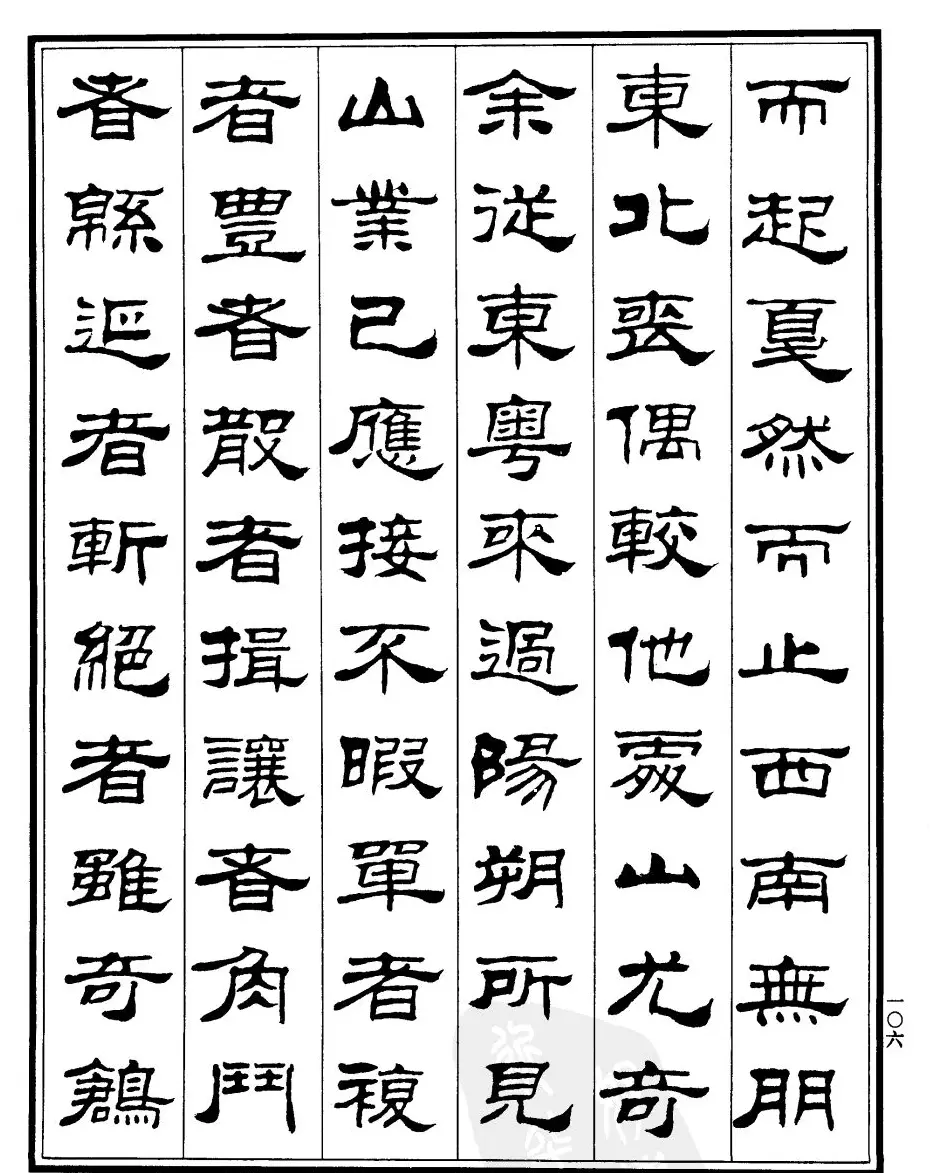 而起戛然而止西南無朋
東北喪偶較他處山尤奇
余從東粵來過陽朔所見
山業已應接不暇單者複
者豐者散者揖讓者角鬥
者緜延者斬絕者雖奇鶬
一〇六